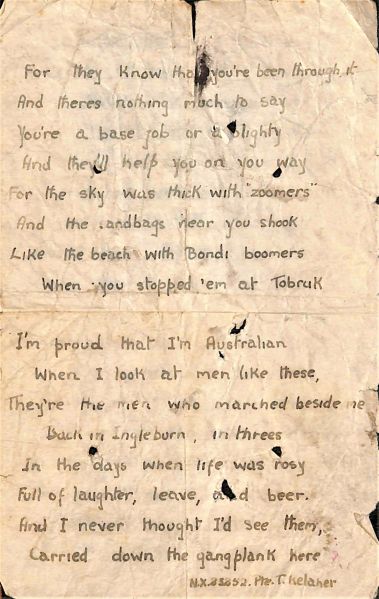 For they know that you're been through it
And theres nothing much to say
You're a base job or a blighty
And they'll help you on you way
For the sky was thick with "zoomers"
And the sandbags near you shook
Like the beach with Bondi boomers
When you stopped 'em at Tobruk
I'm proud that I'm Australian
When I look at men like these,
They're the men who marched beside me
Back in Ingleburn, in threes
In the days when life was rosy
Full of laughter, leave, and beer.
And I never thought I'd see them,
Carried down the gangplank here
Pte. T. Kelaher